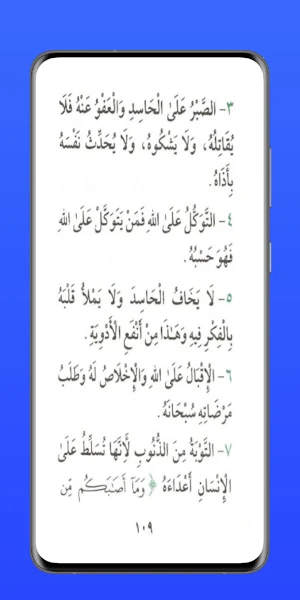 ٣- الصَّبْرُ عَلَىٰ الْحَاسِدِ وَالْعَفْوُ عَنْهُ فَلَا
يُقَاتِلُهُ، وَلَا يَشْكُوهُ، وَلَا يُحَدِّثُ نَفْسَهُ
بِأَذَاهُ.
٤- التَّوَكُّلُ عَلَىٰ اللهِ فَمَنْ يَتَوَكَّلْ عَلَىٰ اللهِ
فَهُوَ حَسْبُهُ.
٥- لَا يَخَافُ الْحَاسِدَ وَلَا يَمْلأُ قَلْبَهُ
بِالْفِكْرِ فِيهِ وَهَـٰذَا مِنْ أَنْفَعِ الْأَدْوِيَةِ.
٦- الْإِقْبَالُ عَلَىٰ اللهِ وَالْإِخْلَاصُ لَهُ وَطَلَبُ
مَرْضَاتِهِ سُبْحَانَهُ.
٧- التَّوْبَةُ مِنَ الذُّنُوبِ لِأَنَّهَا تُسَلِّطُ عَلَىٰ
الْإِنْسَانِ أَعْدَاءَهُ ﴿ وَمَآ أَصَـٰبَكُم مِّن
١٠٩